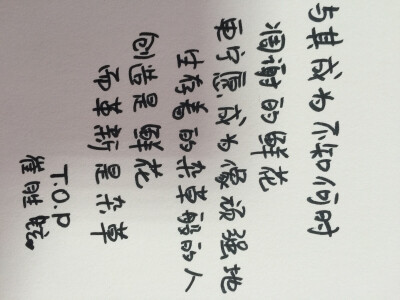 与其成为不知何时
凋谢的鲜花
更宁愿成为像顽强地
生存着的杂草般的人
创造是鲜花
而革新是杂草
T.O.P
崔胜铉